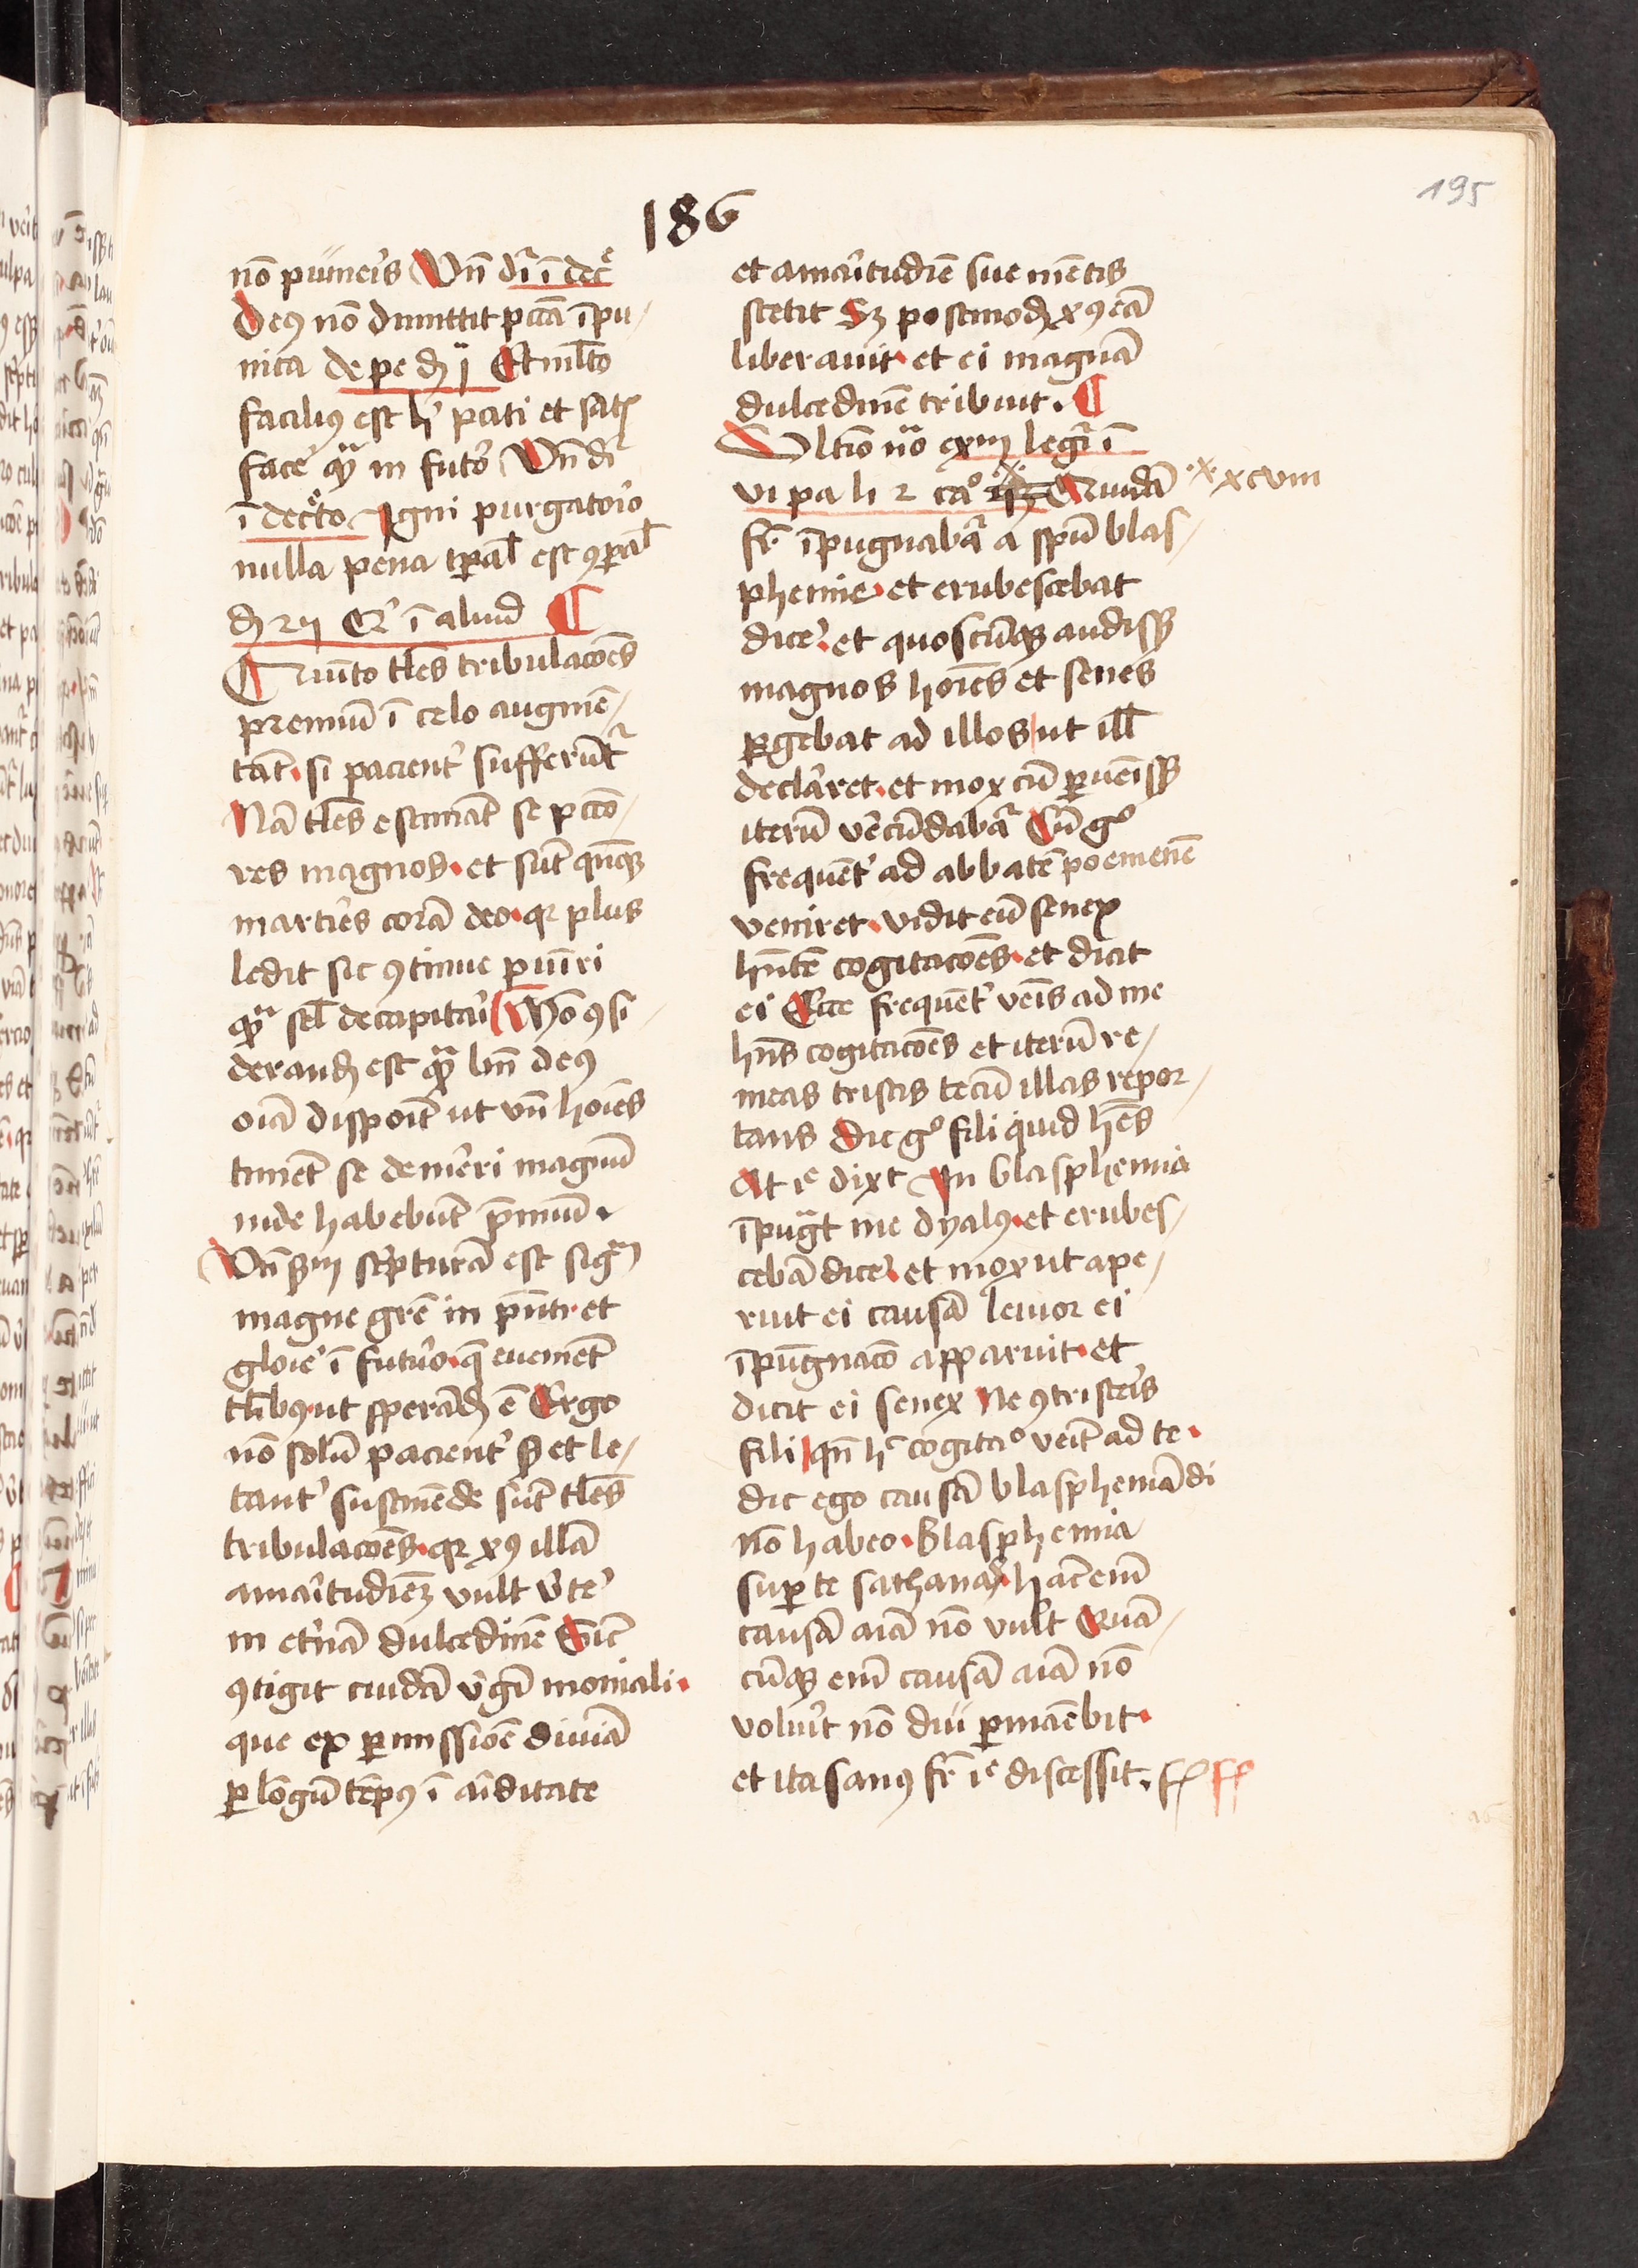 195
186
nō pūneris Vn̄ dr̄ ī dec̄
Deꝰ nō dimittit pctā īpu
nita de pe d ij Et ml̄to
faciliꝰ est h' pati et satis
face' qꝫ in futo' Vn̄ dr̄
ī decto Igni purgatorio
nulla pena tp̄al' est ꝯpal'
Quīto tl̄es tribulacōes
premiū ī celo augmē
tāt. si pacient' sufferūt'
Nā tl̄es estimāt se pctō
res magnos. et sūt qn̄qꝫ
marties corā deo. qꝛ plus
ledit sic ꝯtinue puīri
qꝫ sel' decapitari Nō ꝯsi
derand est qꝫ bn̄ deꝰ
oīā dispoit ut vn̄ hoīes
timēt se demeri magnū
inde habebūt p̄miū.
Vn̄ scripturā est sigꝫ
magne grē in pn̄ti. et
glorie ī futuro. q̄ eueniēt
tl̄ibꝰ. ut sperād ē Ergo
nō solū pacient' sꝫ et le
tant' sustinēde sūt tl̄es
tribulacōes. qꝛ xꝰ illā
amaritudiēꝫ vult v̄te'
in et'nā dulcedinē Sic
ꝯtigit cuidā v̄gī moniali.
que ex ꝑmissiōe diuiā
ꝑ lōgū tēpꝰ ī ariditate
et amaritudiē sue mētis
stetit Sꝫ postmodꝫ xꝰ eā
liberauit. et ei magnā
dulcedinē tribuit.
Vltio nō exm legr̄ ī
vi pa li 2 ca° Quidā xxcviii
fr̄ īpugnabat' a spū blas
phemie. et erubescebat
dice'. et quoscūqꝫ audisꝫ
magnos hoīes et senes
ꝑgebat ad illos ut ill'
declaret. et mox cū ꝑuenisꝫ
iterū ve'cūdabat' Cū g°
frequēt' ad abbatē poemenē
veniret. vidit eū senex
hn̄tē cogitacōes. et dicit
ei Ecce frequēt' venis ad me
hn̄s cogitacōes et iterū re
meas tristis tecū illas repor
tans Dic g° fili quid hēs
At ıͤ dixt In blasphemia
īpugt me dyalꝰ. et erubes
cebā dice'. et mox ut ape
ruit ei causā leuior ei
īpūgnacō apparuit. et
dicit ei senex Ne ꝯtristeris
fili qn̄ hᶜ cogitac° veīt ad te.
dic ego causā blasphemādi
nō habeo. Blasphemia
suꝑ te sathana. hāc eni
causā aīa nō vult Quā
cūqꝫ eni causā aīa nō
voluit nō diu ꝑmaēbit.
et ita sanꝰ fr̄ ıͤ discessit.